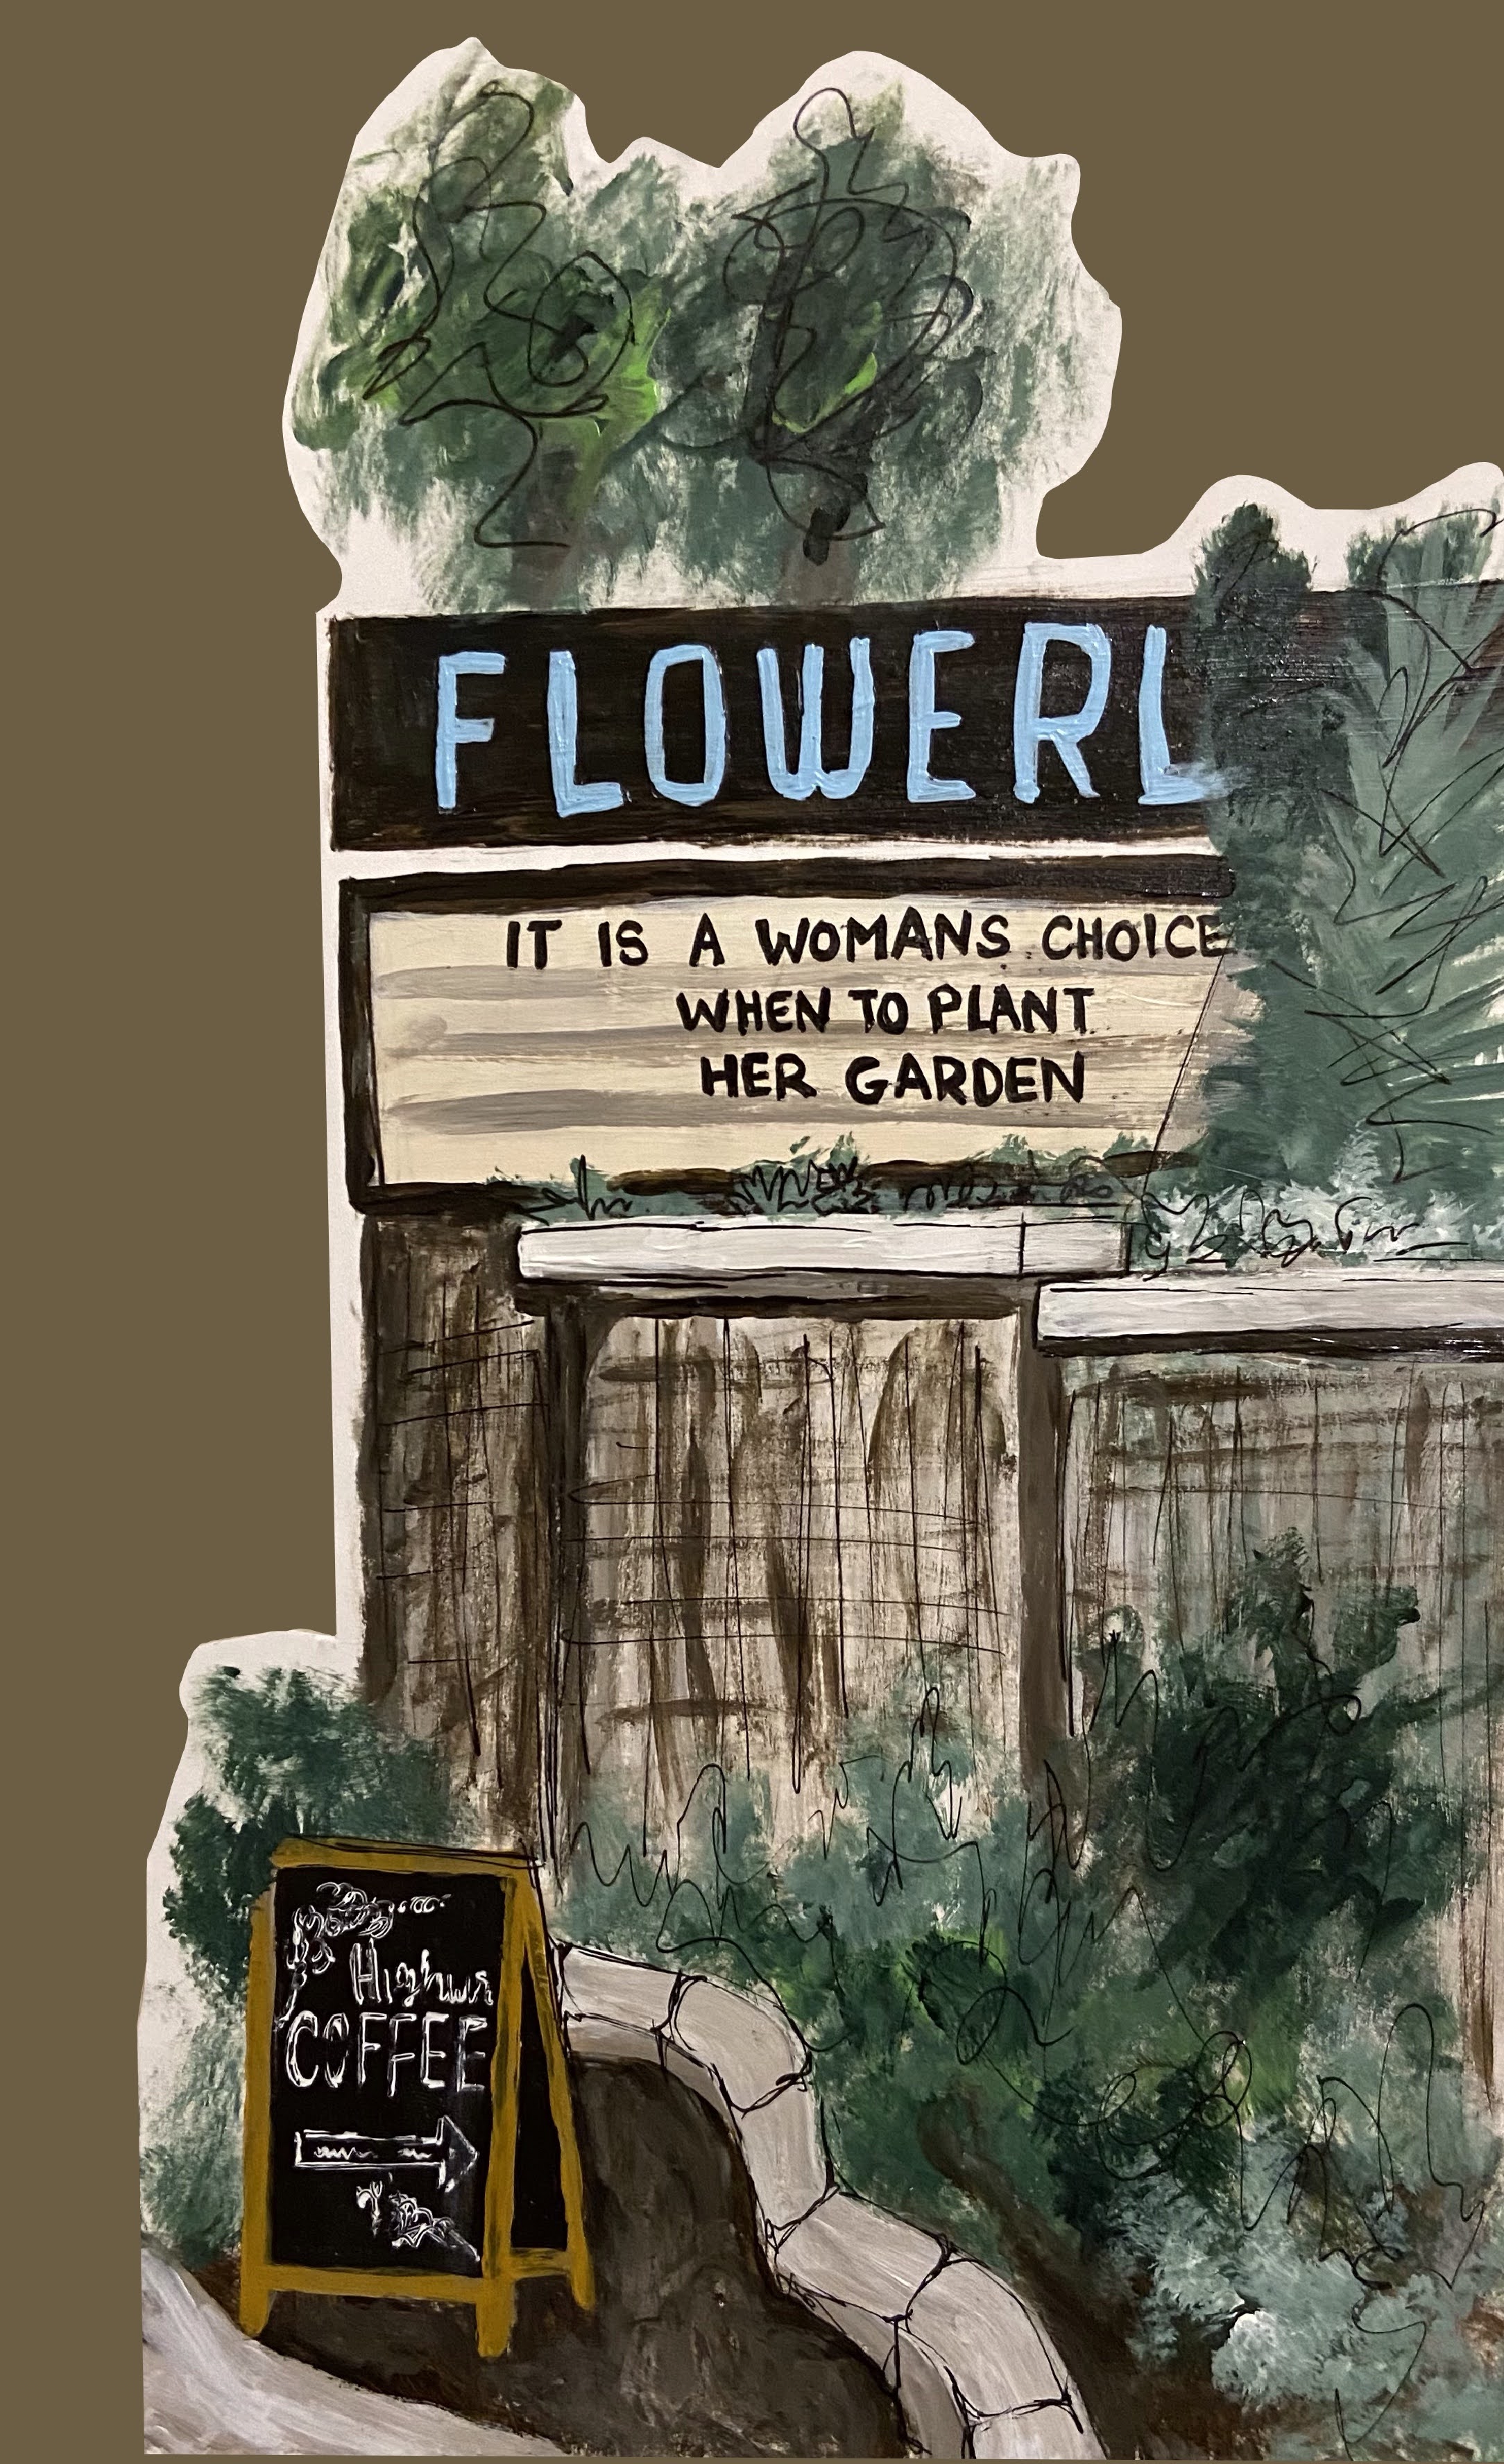 FLOWERL
IT IS A WOMANS CHOICE
WHEN TO PLANT
HER GARDEN
COFFEE